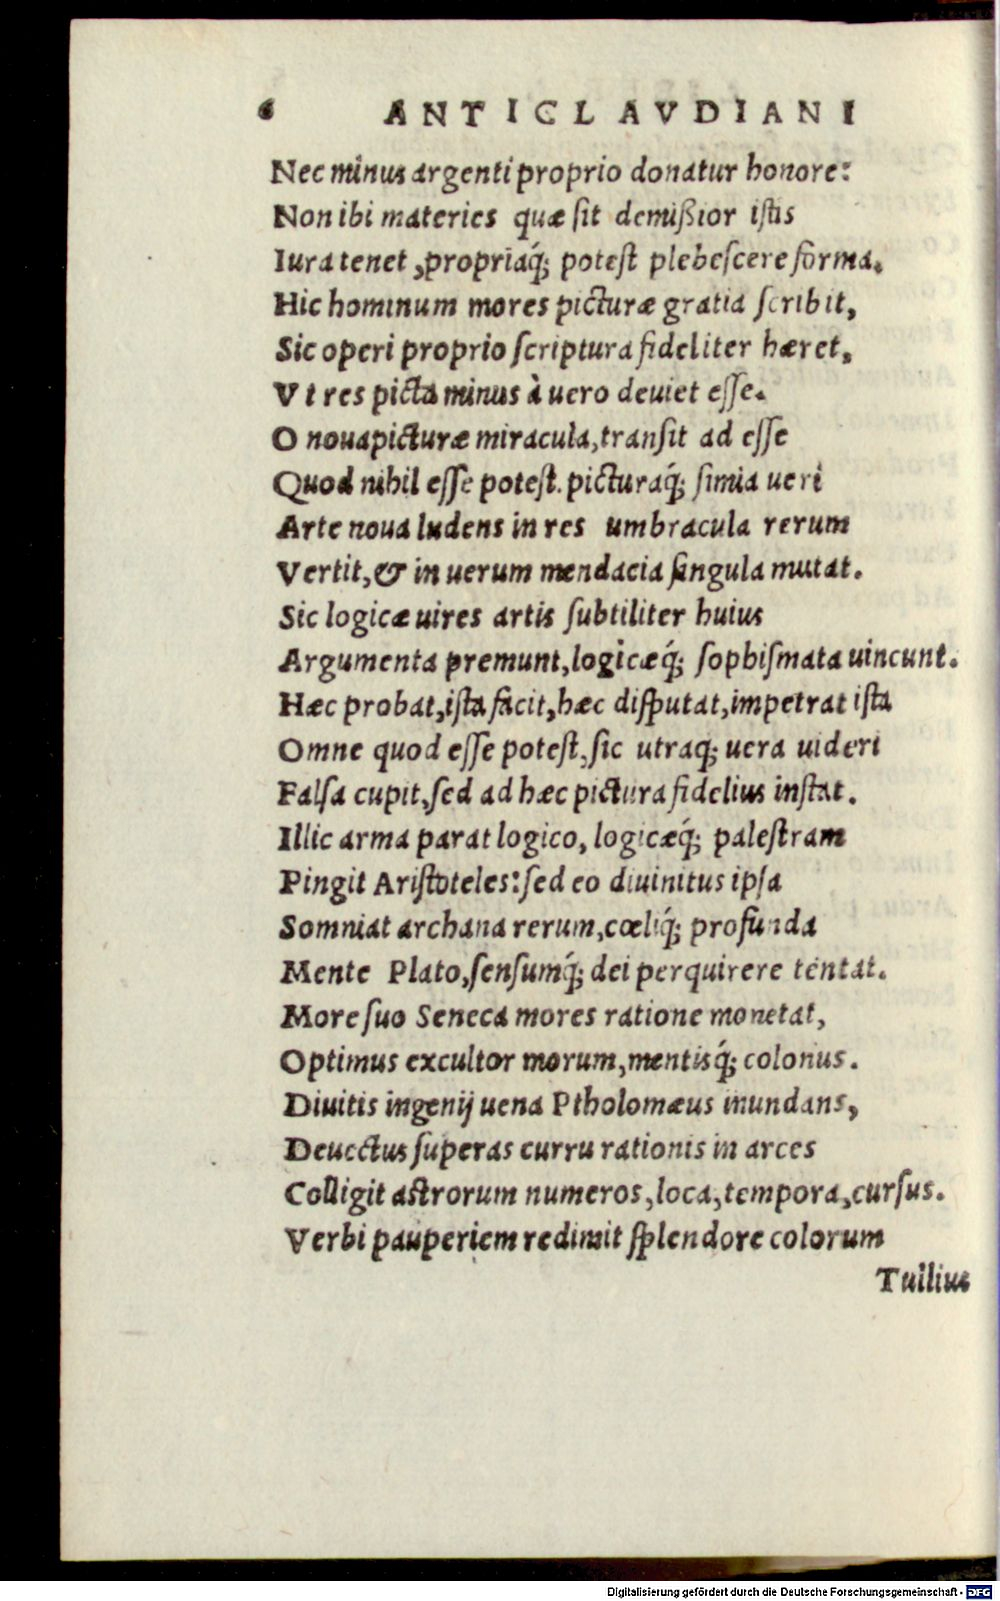 6 ANTICLAVDIANI
Nec minus argenti proprio donatur honore:
Non ibi materies quæ ſit demißior iſtis
Iura tenet, propriaq́; poteſt plebeſcere forma.
Hic hominum mores picturæ gratia ſcribit,
Sic operi proprio ſcriptura fideliter hæret,
Vt res picta minus à uero deuiet eſſe.
O noua picturæ miracula, tranſit ad eſſe
Quod nihil eſſe poteſt. picturaq́; ſimia ueri
Arte noua ludens in res umbracula rerum
Vertit, & in uerum mendacia ſingula mutat.
Sic logicæ uires artis ſubtiliter huius
Argumenta premunt, logicæq́; ſophiſmata uincunt.
Hæc probat, iſta facit, hæc diſputat, impetrat iſta
Omne quod eſſe poteſt, ſic utraq; uera uideri
Falſa cupit, ſed ad hæc pictura fidelius inſtat.
Illic arma parat logico, logicæq́; paleſtram
Pingit Ariſtoteles: ſed eo diuinitus ipſa
Somniat archana rerum, cœliq́; profunda
Mente Plato, ſenſumq́; dei perquirere tentat.
More ſuo Seneca mores ratione monetat,
Optimus excultor morum, mentisq́; colonus.
Diuitis ingenij uena Ptholomæus inundans,
Deuectus ſuperas curru rationis in arces
Colligit aſtrorum numeros, loca, tempora, curſus.
Verbi pauperiem redimit ſplendore colorum
Tullius
Digitalisierung gefördert durch die Deutsche Forschungsgemeinschaft - DFG